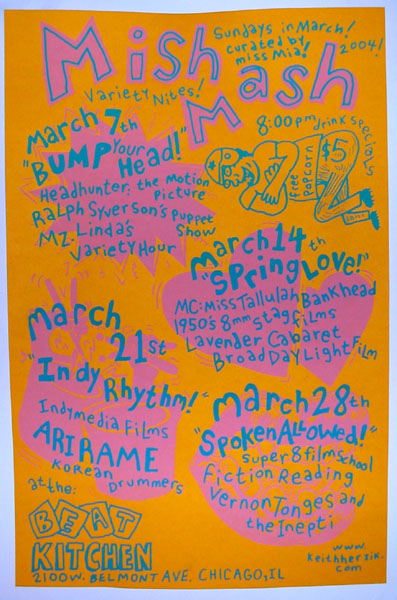 Mish
Mash
Variety Nites!
Sundays in March!
curated by
miss Mia!
2004!
8:00pm drink specials
free
popcorn
$5
March 7th
"BUMP Your
Head!"
Headhunter: the Motion
Picture
Ralph Syverson's Puppet
Show
MZ. Linda's
Variety Hour
March 14th
"Spring Love!"
MC: Miss Tallulah Bankhead
1950's 8mm stag films
Lavender Cabaret
Broad Day Light Film
March
21st
"Indy
Rhythm!"
Indymedia Films
ARIRAME
Korean
Drummers
March 28th
"Spoken Allowed!"
super 8 film school
fiction Reading
Vernon Tonges and
the Inepti
at the:
BEAT
KITCHEN
2100 W. BELMONT AVE, CHICAGO, IL
www.
keithherzik.
com